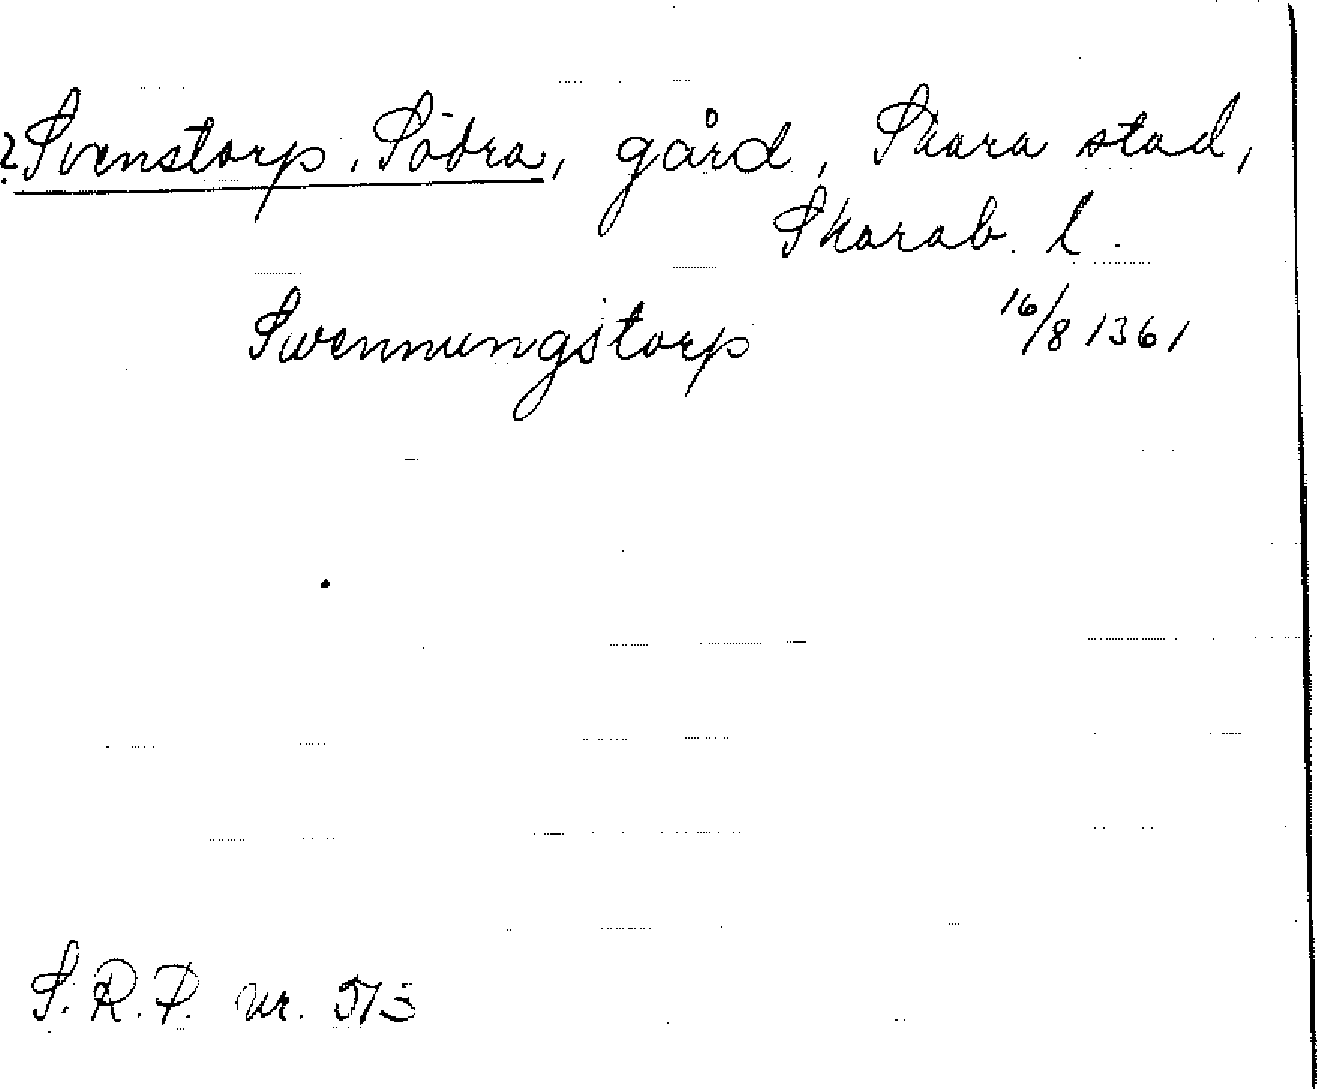 ? Svenstorp, Södra, gård, Skara stad,
Skarab. l.
Swennungstorp 16/8 1361
S.R.P. nr. 513